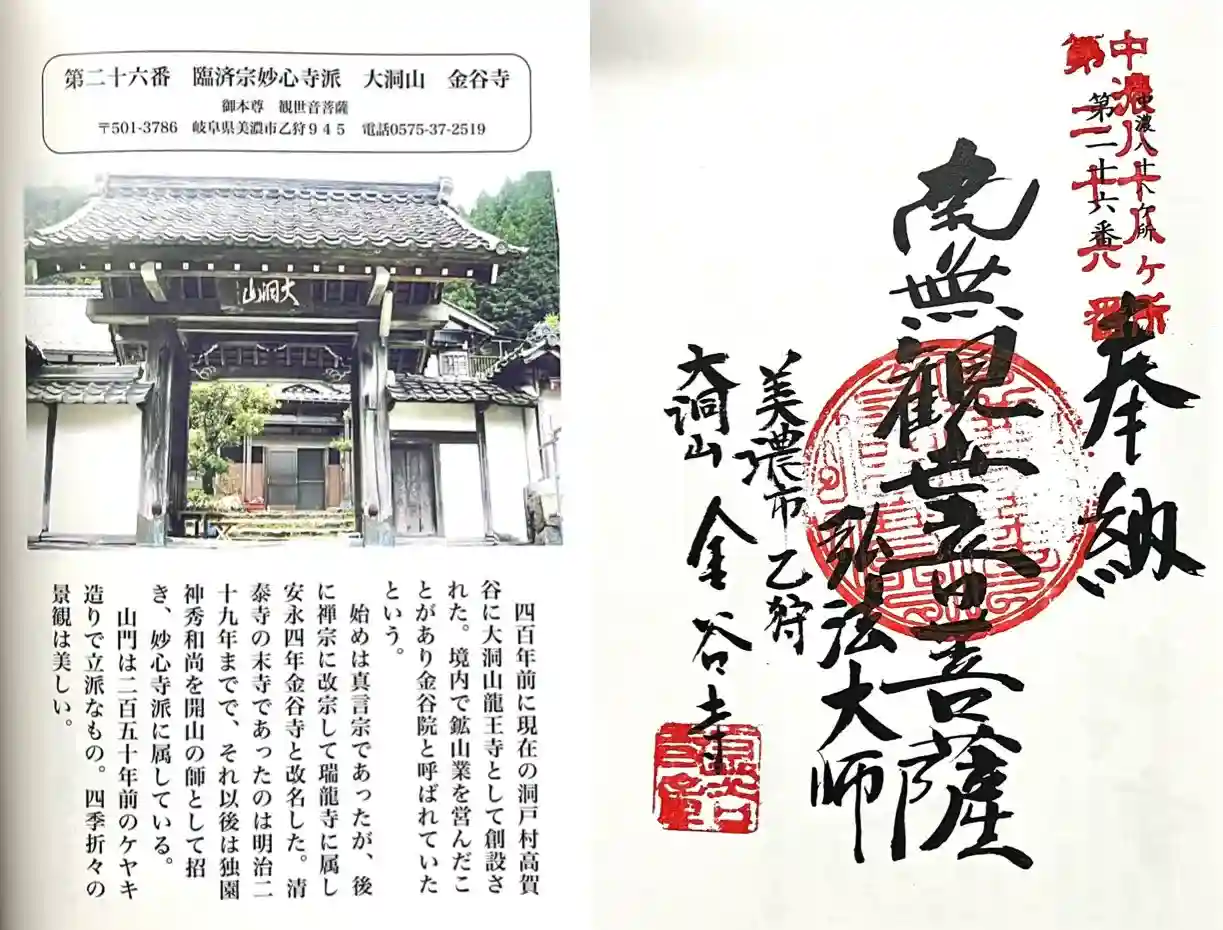 第二十六番 臨済宗妙心寺派 大洞山 金谷寺
御本尊 観世音菩薩
〒501-3786 岐阜県美濃市乙狩945 電話0575-37-2519
大洞山
四百年前に現在の洞戸村高賀
谷に大洞山龍王寺として創設さ
れた。境内で鉱山業を営んだこ
とがあり金谷院と呼ばれていた
という。
始めは真言宗であったが、後
に禅宗に改宗して瑞龍寺に属し
安永四年金谷寺と改名した。清
泰寺の末寺であったのは明治二
十九年までで、それ以後は独園
神秀和尚を開山の師として招
き、妙心寺派に属している。
山門は二百五十年前のケヤキ
造りで立派なもの。四季折々の
景観は美しい。
中濃八十八ヶ所
中濃八十八ヶ所
第二十六番
奉納
南無観世音菩薩
弘法大師
美濃市乙狩
大洞山 金谷寺